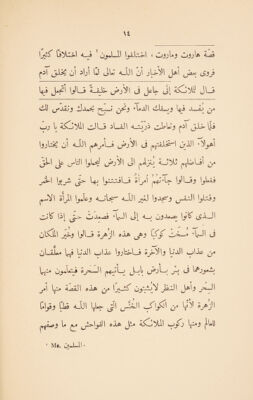 ١٤
قصّة هاروت وماروت، اختلفوا المسلمون¹ فيه اختلافًا كثيرًا
فروى بعض اهل الأخبار أنّ اللـه تعالى لمّا أراد أن يخلق آدم
قـال للملائـكـة إنّى جاعل فى الأرض خليفـة قـالوا أتجعل فيها
من يُفسد فيها ويسفك الدمآء ونحن نسبّح بحمدك ونقدّس لك
فلمّا خلق آدم وتعاطت ذرّيّتـه الفساد قـالت الملائـكـة يا ربّ
أهولآء الذين استخلفتهم فى الأرض فـأمرهم اللـه أن يختاروا
من أفاضلهم ثلاثـة ينزلهم الى الأرض ليحملوا الناس على الحقّ
ففعلوا وقـالوا جآءتهم امرأة فـافتتنوا بهـا حتّى شربوا الخمر
وقتلوا النفس وسجدوا لغير اللـه سبحانـه وعلّموا المرأة الاسم
الـذى كانوا يصعدون بـه إلى السمآء فصعدت حتّى إذا كانت
فى السمآء مُسخت كوكبًا وهى هذه الزُهرة قـالوا وخُيّر الملكان
من عذاب الدنيا والآخرة فـاختاروا عذاب الدنيا فهما معلّقـان
بشعورهما فى بئر بـأرض بابل يـأتيهم السحرة فيتعلّمون منها
السحر وأهل النظر لا يُثبتون كثيـرًا من هذه القصّة منها أمر
الزُهرة لأنّها من الكواكب الخُنّس التى جعلها اللـه قطبًا وقوامًا
للعالم ومنها ركوب الملائـكـة مثل هذه الفواحش مع ما وصفهم
¹ Ms. المسلمين.